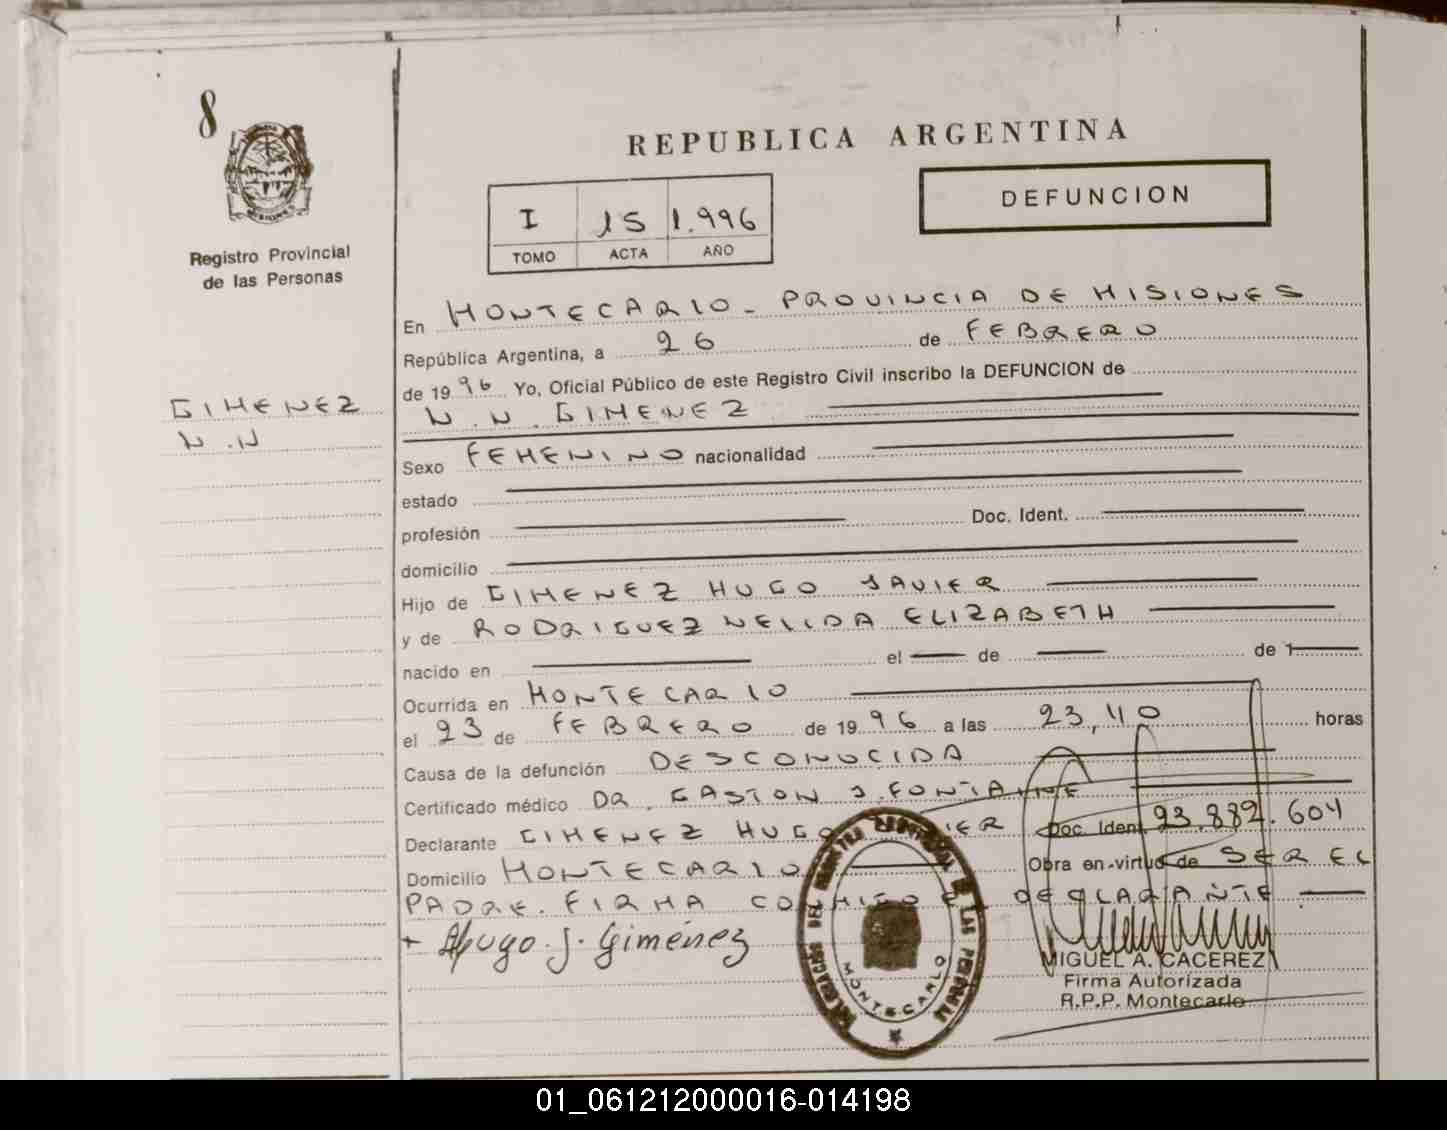 8
REPUBLICA ARGENTINA
DEFUNCION
I 15 1.996
TOMO ACTA AÑO
Registro Provincial
de las Personas
En MONTECARLO - PROVINCIA DE MISIONES
República Argentina, a 26 de FEBRERO
de 1996 Yo, Oficial Público de este Registro Civil inscribo la DEFUNCION de
GIMENEZ
N.N
N.N. GIMENEZ
Sexo FEMENINO nacionalidad
estado
profesión Doc. Ident.
domicilio
Hijo de GIMENEZ HUGO JAVIER
y de RODRIGUEZ NELIDA ELIZABETH
nacido en el de de 1
Ocurrida en MONTECARLO
el 23 de FEBRERO de 1996 a las 23,40 horas
Causa de la defunción DESCONOCIDA
Certificado médico DR. GASTON J. FONTAINE
Declarante GIMENEZ HUGO Doc. Ident. 23.882.604
Domicilio MONTECARLO Obra en virtud de SER EL
PADRE. FIRMA CONMIGO EL DECLARANTE.
+ Hugo. J. Giménez
MIGUEL A. CACEREZ
Firma Autorizada
R.P.P. Montecarlo
DEL REGISTRO PROVINCIAL DE LAS PERSONAS
MONTECARLO
01_061212000016-014198